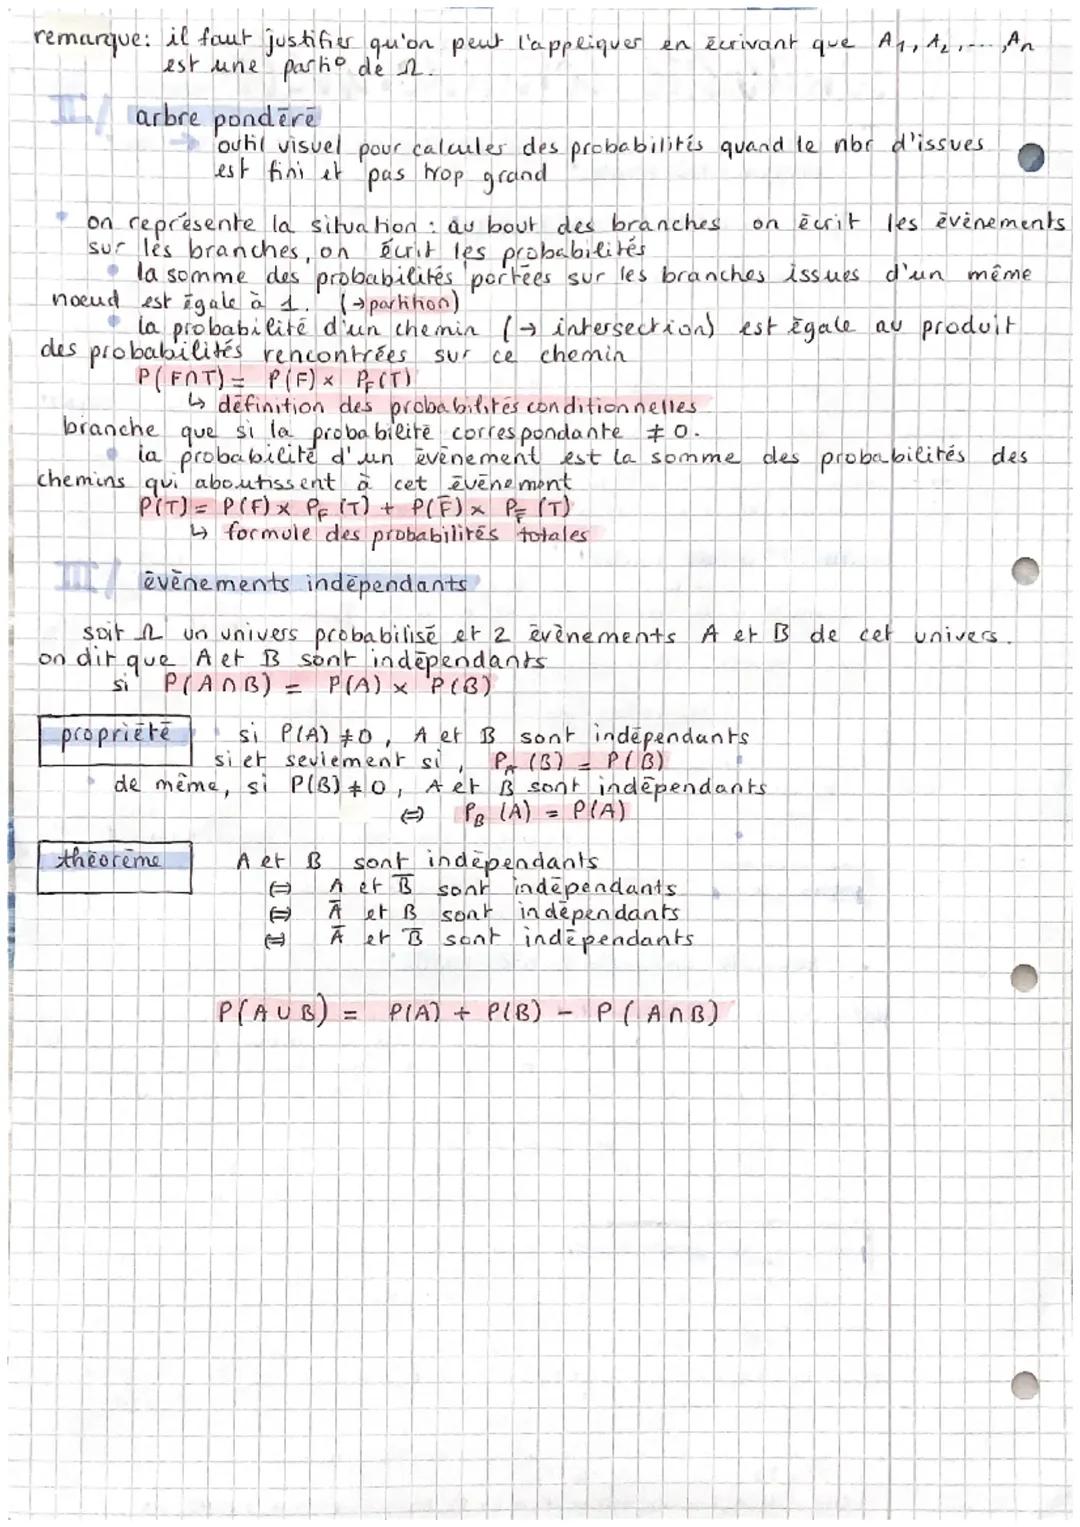 remarque: il faut justifier qu'on peut l'appliquer en écrivant que A1, A2, ..., An
est une partie de Ω.
II./ arbre pondéré
→ outil visuel pour calculer des probabilités quand le nbr d'issues
est fini et pas trop grand
• on représente la situation : au bout des branches on écrit les évènements
sur les branches, on écrit les probabilités
• la somme des probabilités portées sur les branches issues d'un même
noeud est égale à 1. (→ partition)
• la probabilité d'un chemin (→ intersection) est égale au produit
des probabilités rencontrées sur ce chemin
P(F∩T) = P(F) × P_F(T)
↳ définition des probabilités conditionnelles
branche que si la probabilité correspondante ≠ 0.
• la probabilité d'un évènement est la somme des probabilités des
chemins qui aboutissent à cet évènement
P(T) = P(F) × P_F(T) + P(F̅) × P_F̅(T)
↳ formule des probabilités totales
III/ évènements indépendants
soit Ω un univers probabilisé et 2 évènements A et B de cet univers.
on dit que A et B sont indépendants
si P(A∩B) = P(A) × P(B)
propriété • si P(A) ≠ 0, A et B sont indépendants
si et seulement si, P_A(B) = P(B)
• de même, si P(B) ≠ 0, A et B sont indépendants
⇔ P_B(A) = P(A)
théorème A et B sont indépendants
⇔ A et B̅ sont indépendants
⇔ A̅ et B sont indépendants
⇔ A̅ et B̅ sont indépendants
P(A∪B) = P(A) + P(B) - P(A∩B)